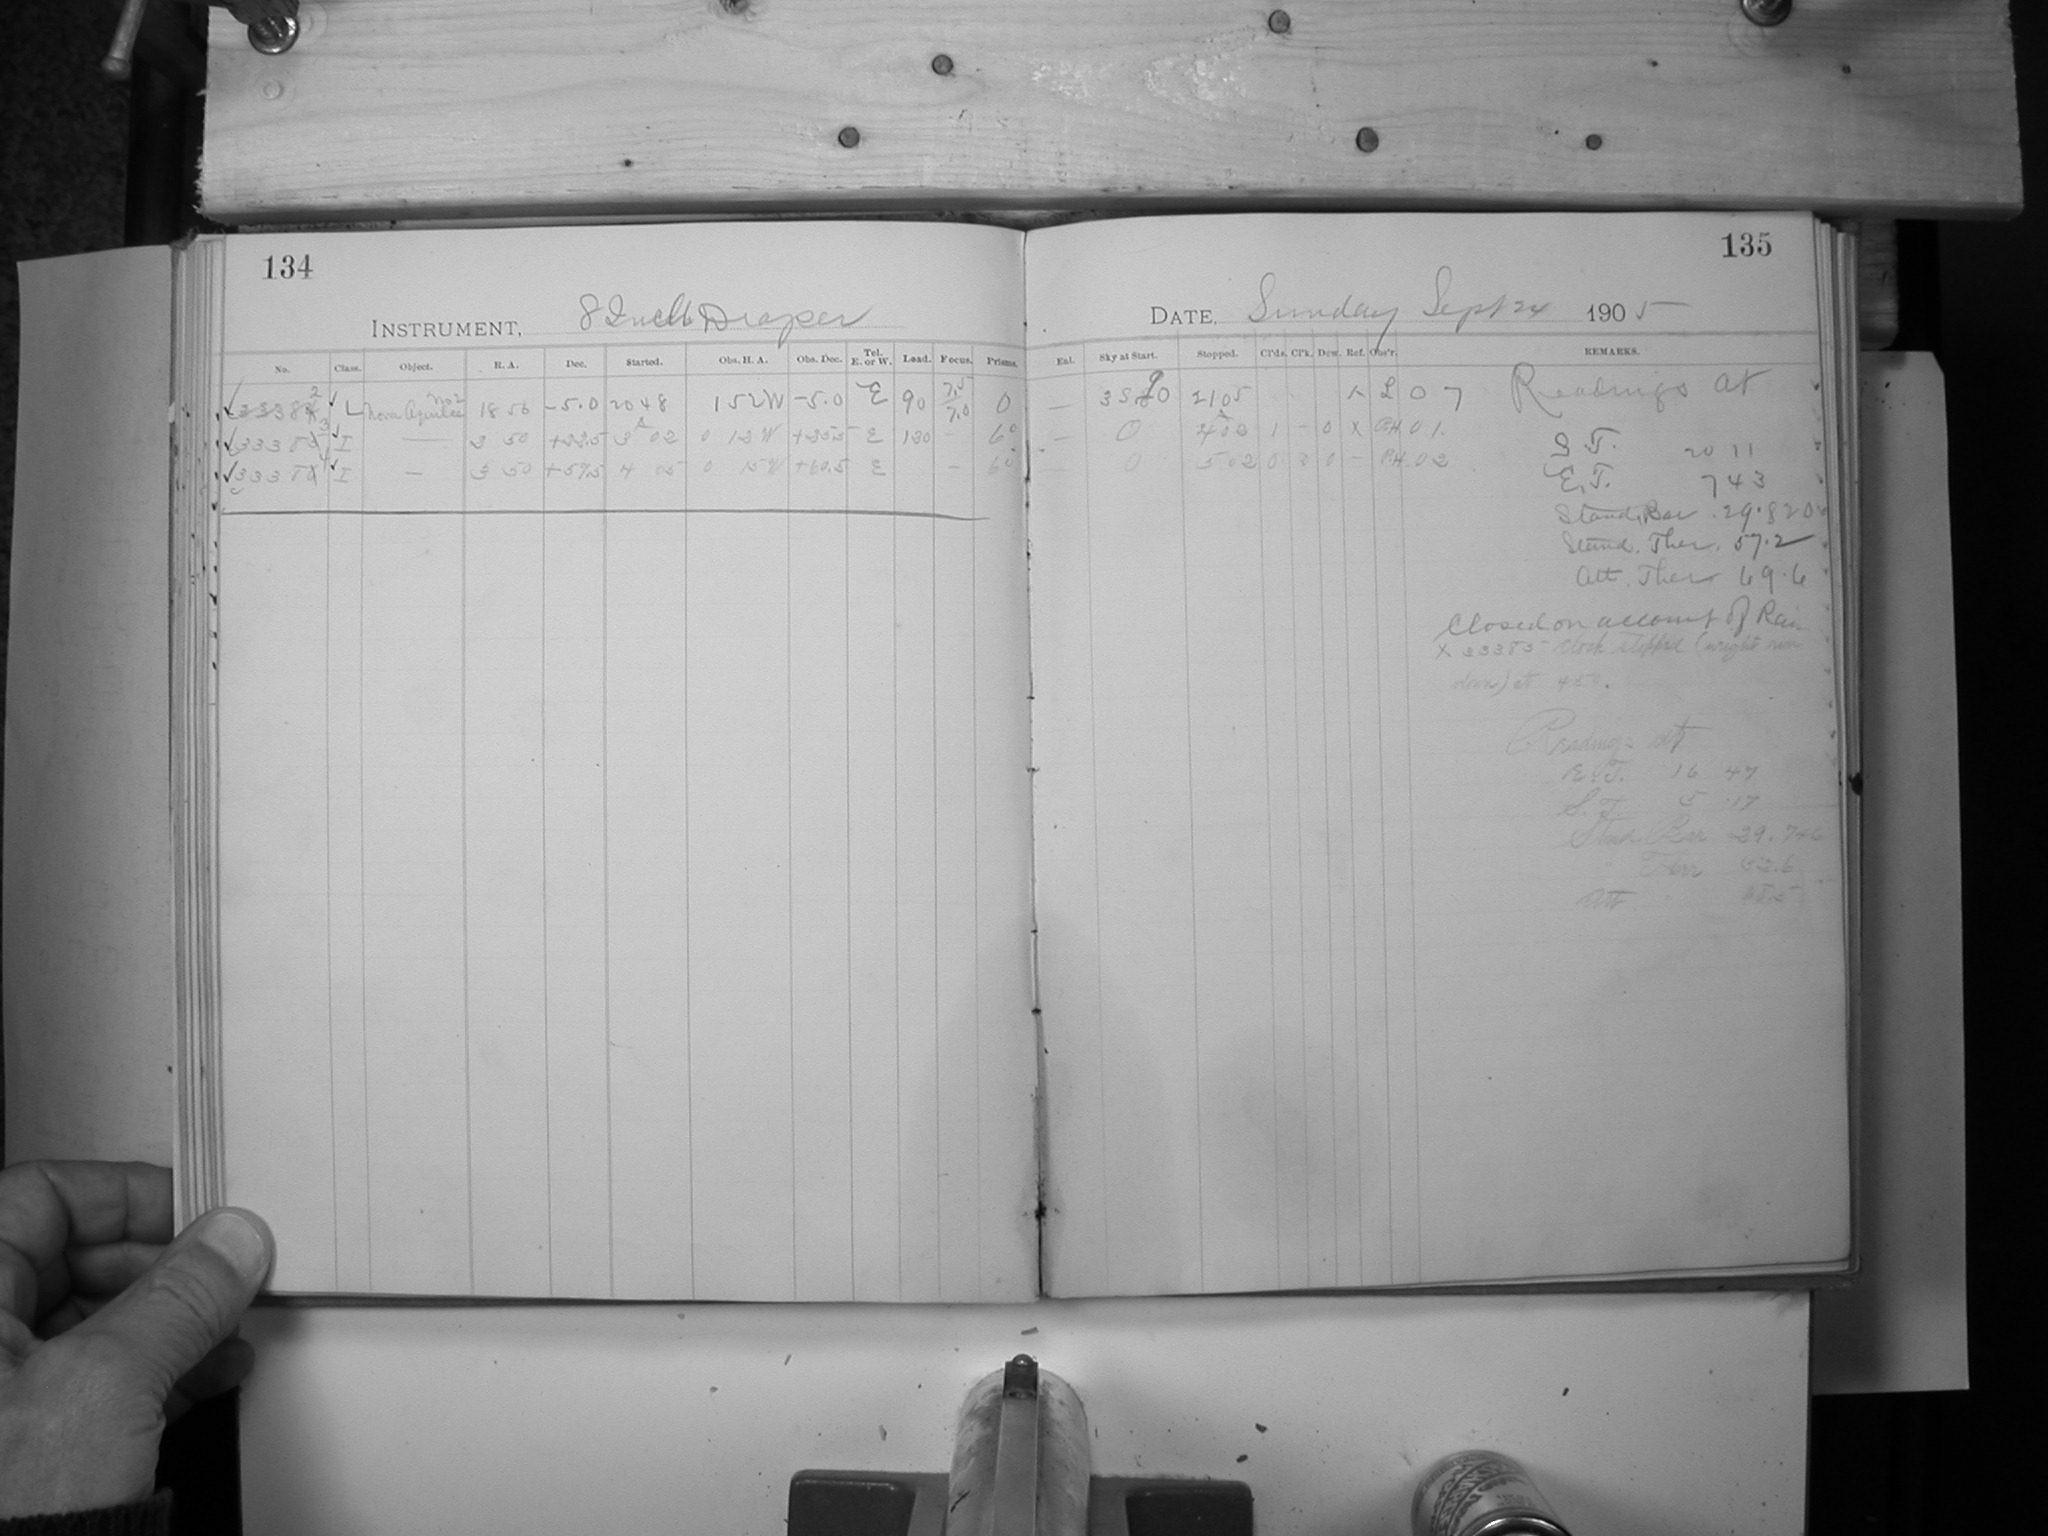 134
INSTRUMENT, 8 Inch Draper
No. Class. Object. R. A. Dec. Started. Obs. H. A. Obs. Dec. Tel. E. or W. Load. Focus. Prisms.
L Nova Aquilae No 2 18 56 -5.0 20 48 1 52 W -5.0 E 90 7.5 7.0 0
I — 3 50 3 02 0 12 W E 130 - 6°
I — 3 50 +57.5 4 05 0 15 W +60.5 E - 6°
135
DATE, Sunday Sept 24 1905
Ent. Sky at Start. Stopped. Cl'ds. Cl'k. Dew. Ref. Obs'r. REMARKS.
— 2105 L 0 7
— 0 4 02 1 - 0 X 01.
0 5 02 0 2 0 - 02
Readings at
S. T. 20 11
E. T. 7 43
Stand. Bar. 29.820
Stand. Ther. 57.2
Att. Ther 69.6
Closed on account of Rain
X 33383 clock stopped (weight run
down) at
Readings at
E. T. 16 47
S. T. 5 17
Stand Bar 29.746
" Ther 52.6
Att "